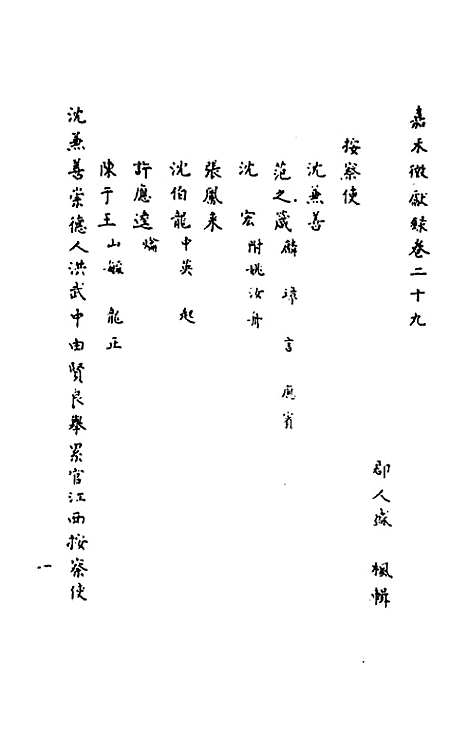 嘉禾徵獻錄卷二十九
郡人盛 楓輯
按察使
沈兼善
范之箴 麟 瑑 言 應賓
沈 宏 附姚汝舟
張鳳來
沈伯龍 中英 起
許應逵 爚
陳于王 山毓 龍正
沈兼善崇德人洪武中由賢良舉累官江西按察使
一